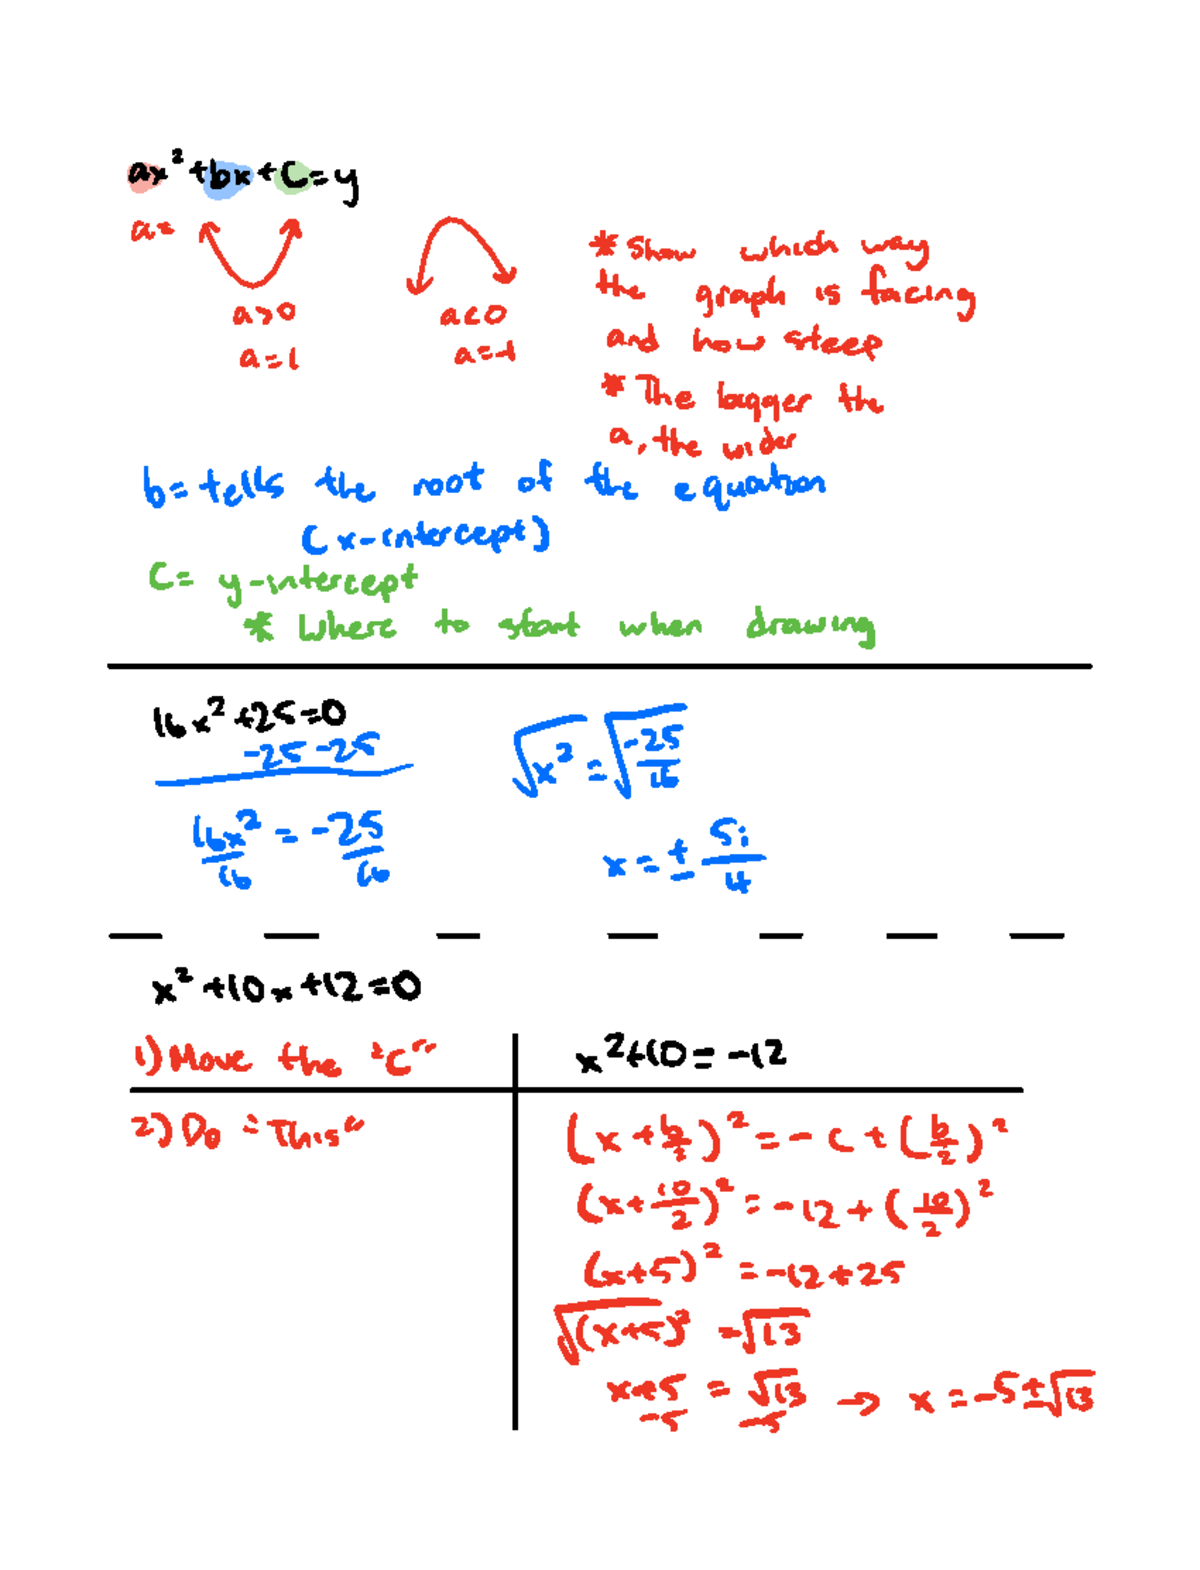 ax² + bx + C = y
a =
a>0
a=1
a<0
a=-1
* Show which way
the graph is facing
and how steep
* The bigger the
a, the wider
b = tells the root of the equation
(x-intercept)
C = y-intercept
* Where to start when drawing
16x² + 25 = 0
-25 -25
16x²/16 = -25/16
√x² = √-25/16
x = ± 5i/4
x² + 10x + 12 = 0
1) Move the "C"
x² + 10 = -12
2) Do "This"
(x + b/2)² = -c + (b/2)²
(x + 10/2)² = -12 + (10/2)²
(x+5)² = -12+25
√(x+5)² = √13
x+5 = √13 → x = -5±√13
-5 -5